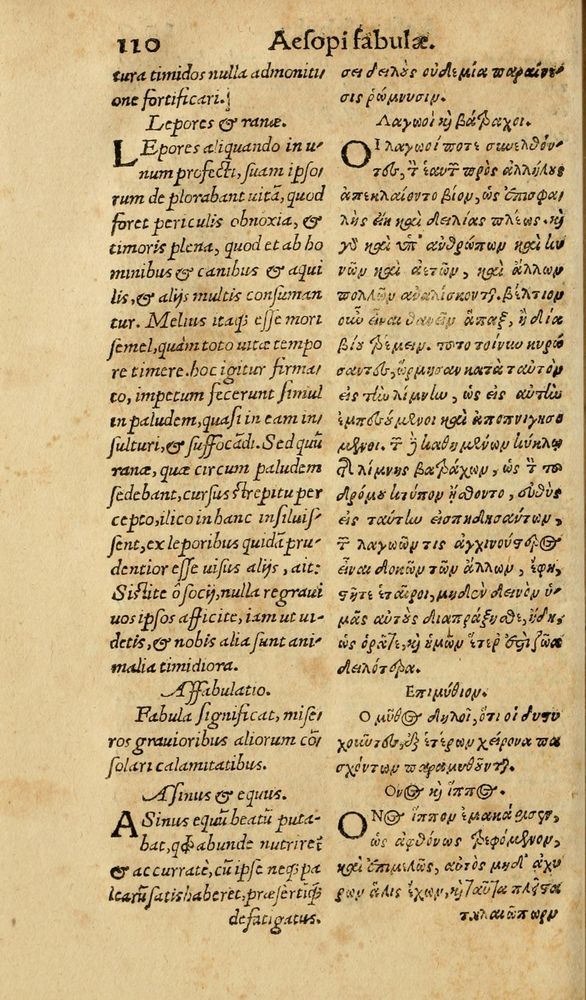 110 Aesopi fabulæ.
tura timidos nulla admonitı⸗
one fortificari.
Lepores & ranæ.
LEpores aliquando in u⸗
num profecti, suam ipso⸗
rum de plorabant uitã, quod
foret periculis obnoxia, &
timoris plena, quod et ab ho
minibus & canibus & aqui
lis, & alijs multis consuman
tur. Melius itaq; esse mori
semel, quàm toto uitæ tempo
re timere. hoc igitur firma⸗
to, impetum fecerunt simul
in paludem, quasi in eam in⸗
sulturi, & suffocãdi. Sed quũ
ranæ, quæ circum paludem
sedebant, cursus strepitu per
cepto, ilico in hanc insiluis⸗
sent, ex leporibus quidã pru⸗
dentior esse uisus alijs, ait:
Sistite ô socij, nulla re graui
uos ipsos afficite, iam ut ui⸗
detis, & nobis alia sunt ani⸗
malia timidiora.
Affabulatio.
Fabula significat, mise⸗
ros grauioribus aliorum cõ⸗
solari calamitatibus.
Asinus & equus.
ASinus equũ beatũ puta⸗
bat, qd abunde nutriret̃
& accurratè, cũ ipse neq; pa
learũ satis haberet, præsertiq;
defatigatus.
σει δειλοὺς οὐδεμία παραίνε⸗
σις ῥώννυσιν.
Λαγωοὶ καὶ βάτραχοι.
ΟΙ λαγωοί ποτε συνελθόν⸗
τες, τὸν ἑαυτῶν πρὸς ἀλλήλους
ἀπεκλαίοντο βίον, ὡς ἐπισφα⸗
λὴς εἴη καὶ δειλίας πλέως. καὶ
γὰρ καὶ ὑπ' ἀνθρώπων καὶ κυ⸗
νῶν καὶ ἀετῶν, καὶ ἄλλων
πολλῶν ἀναλίσκονται. βέλτιον
οὖν εἶναι θανεῖν ἅπαξ, ἢ διὰ
βίου τρέμειν. τοῦτο τοίνυν κυρώ
σαντες, ὥρμησαν κατὰ ταυτὸν
εἰς τὴν λίμνην, ὡς εἰς αὐτὴν
ἐμπεσούμενοι καὶ ἀποπνιγησό
μενοι. τῶν δὲ καθημένων κύκλῳ
τῆς λίμνης βατράχων, ὡς τὸν τοῦ
δρόμου κτύπον ᾔσθοντο, εὐθὺς
εἰς ταύτην εἰσπηδησάντων,
τῶν λαγωῶν τις ἀγχινούστερος
εἶναι δοκῶν τῶν ἄλλων, ἔφη,
στῆτε ἑταῖροι, μηδὲν δεινὸν ὑ⸗
μᾶς αὐτοὺς διαπράξησθε, ἤδη,
ὡς ὁρᾶτε, καὶ ἡμῶν ἕτερ' ἐστὶ ζῶα
δειλότερα.
Επιμύθιον.
Ο μῦθος δηλοῖ, ὅτι οἱ δυστυ
χοῦντες, ἐξ ἑτέρων χείρονα πα
σχόντων παραμυθοῦνται.
Ονος καὶ ἵππος.
ΟΝος ἵππον ἐμακάριζεν,
ὡς ἀφθόνως τρεφόμενον,
καὶ ἐπιμελῶς, αὐτὸς μηδ' ἀχύ
ρων ἅλις ἔχων, καὶ ταῦτα πλεῖστα
ταλαιπωρῶν